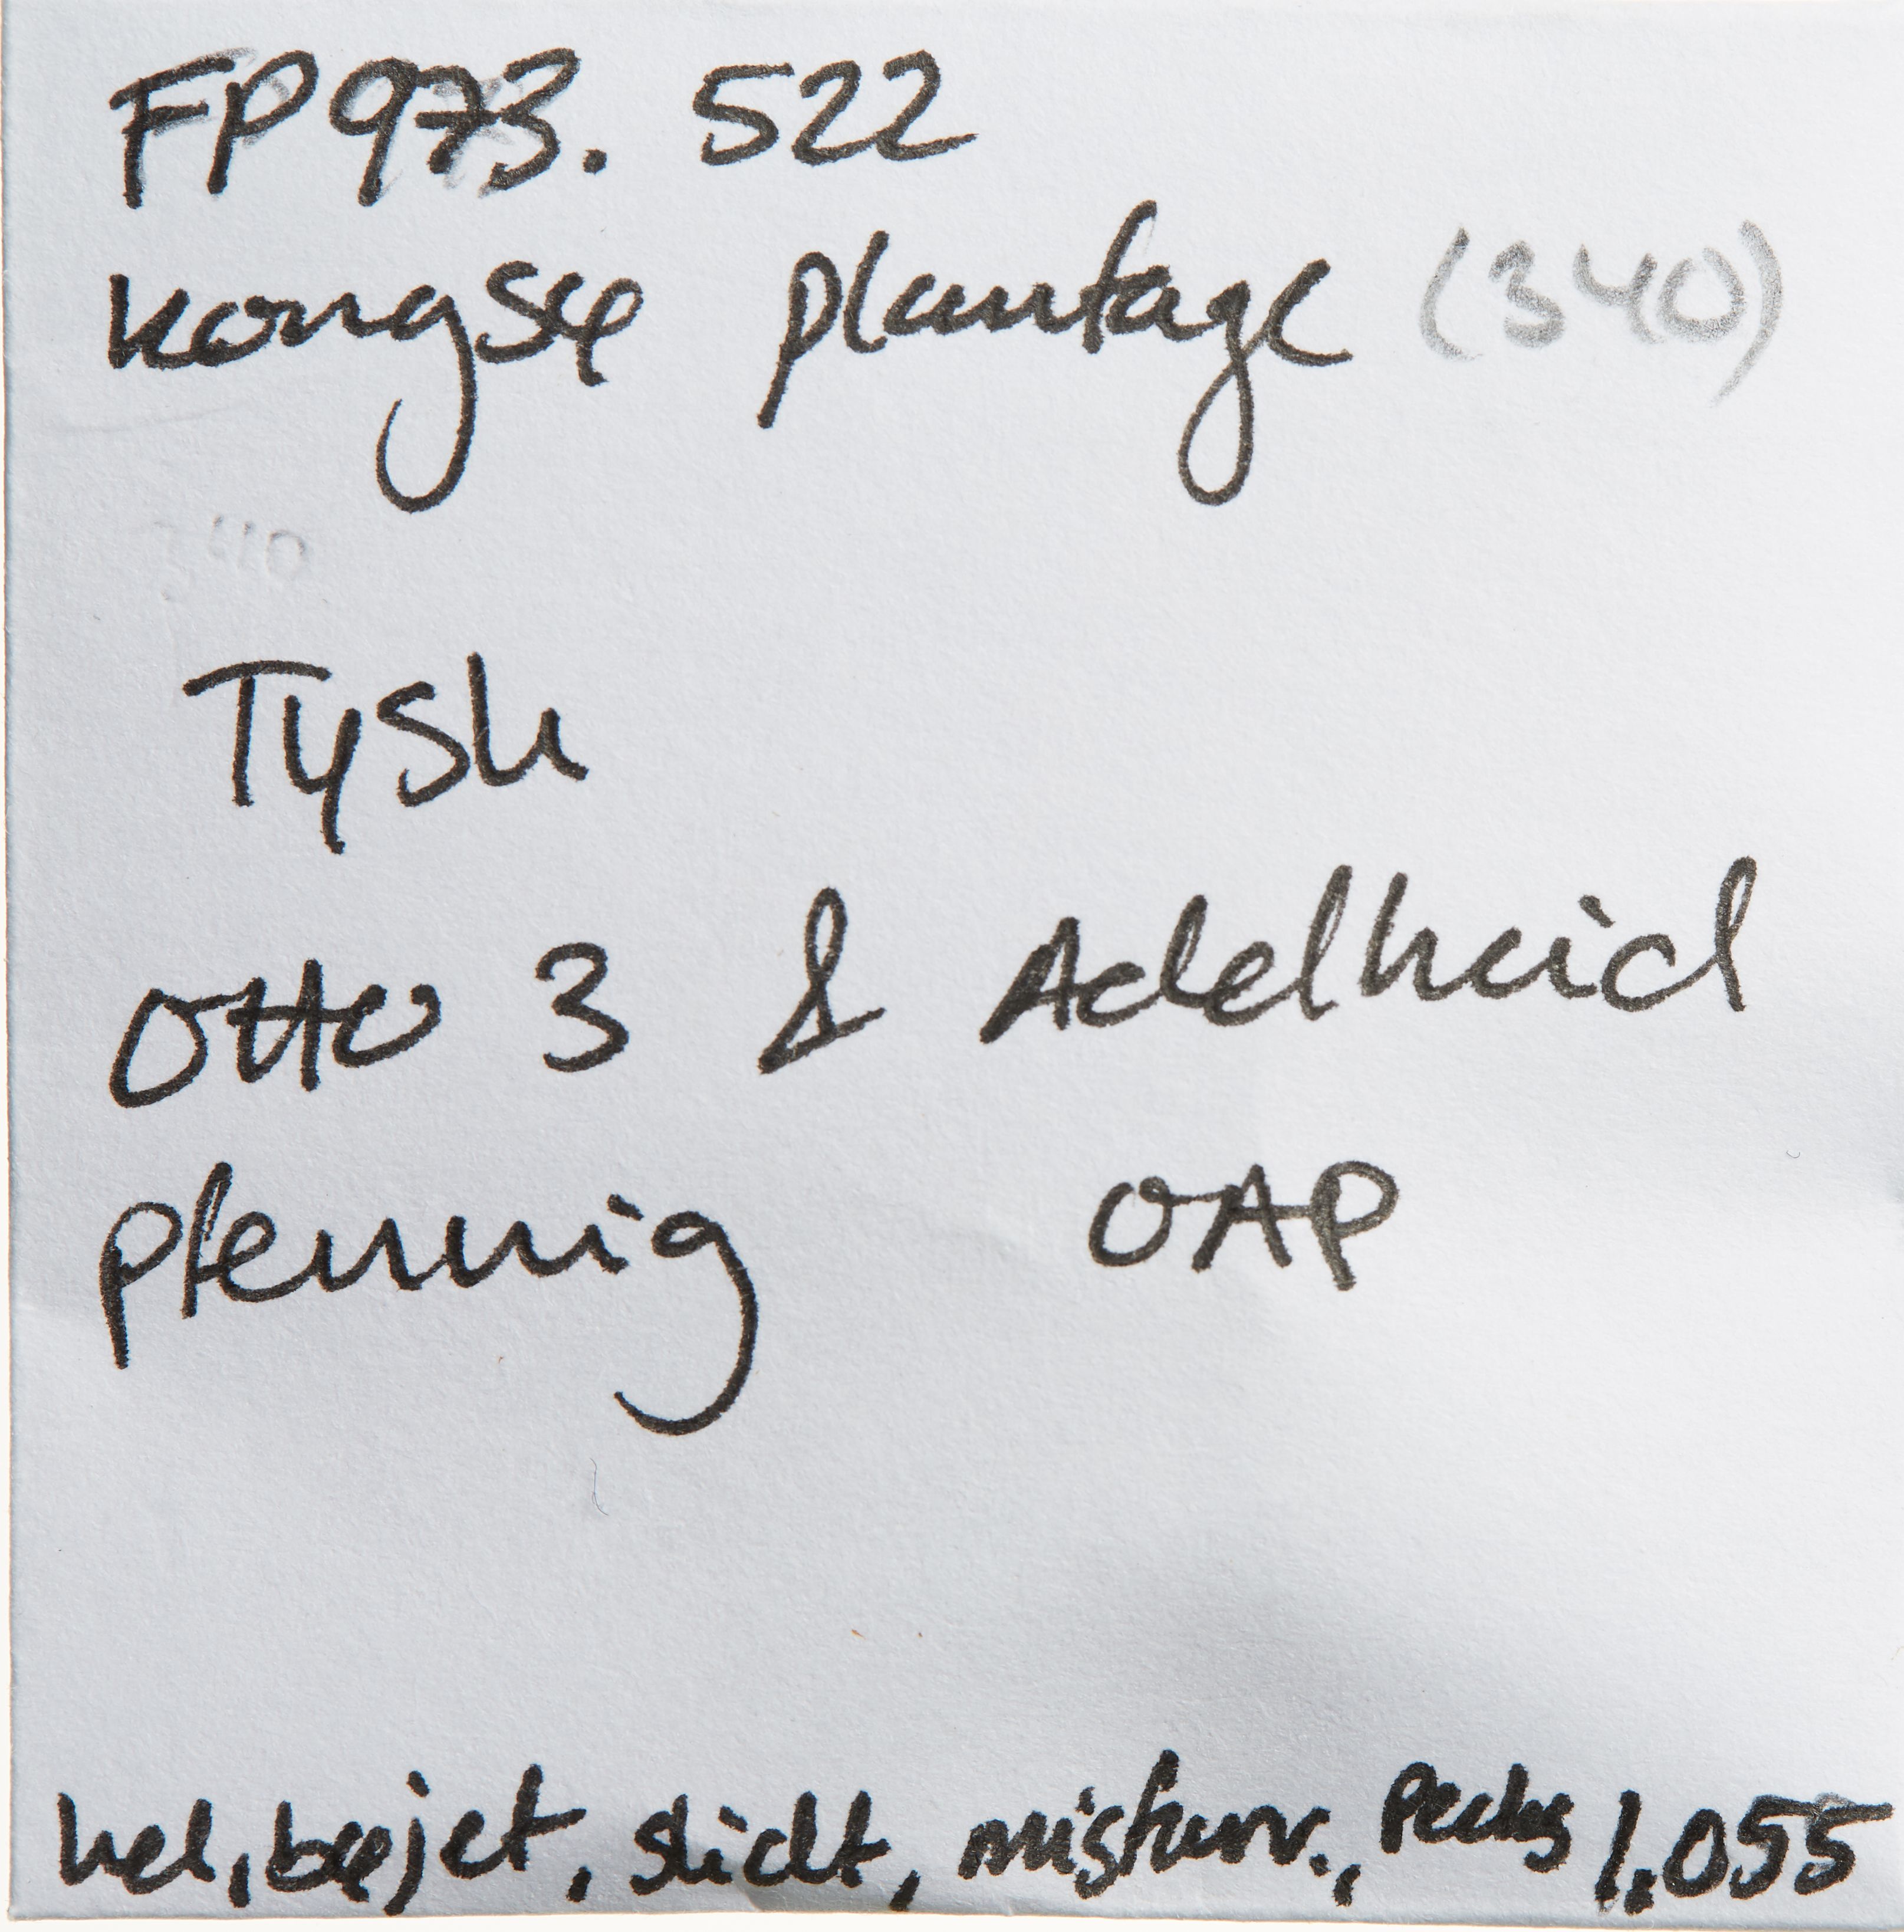 FP 973. 522
Kongsø plantage (340)
340
Tysk
Otto 3 & Adelheid
Pfennig OAP
hel, bøjet, slidt, misfarv., Pecks 1.055